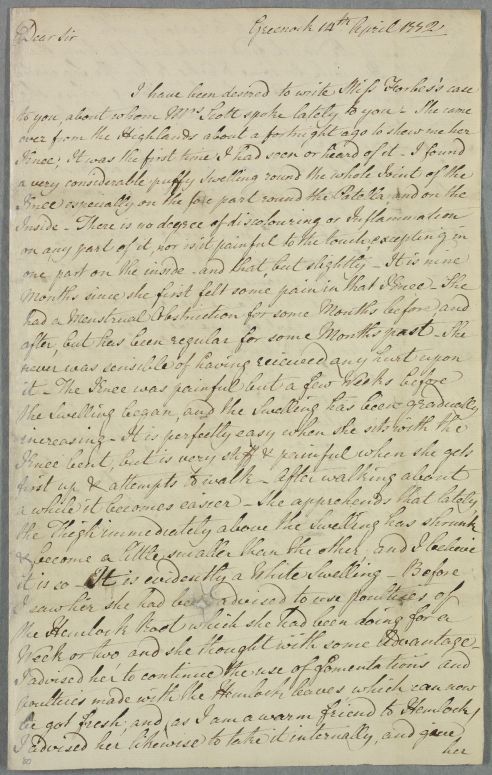 Greenock 14th April 1782
Dear Sir
I have been desired to write Miss Forbes's case
to you, about whom Mrs Scott spoke lately to you - She came
over from the Highlands about a fortnight ago to show me her
Knee; It was the first time I had seen or heard of it - I found
a very considerable puffy Swelling round the whole Joint of the
Knee especially on the fore part round the Patella and on the
Inside - There is no degree of discolouring or Inflammation
on any part of it, nor is it painful to the touch, excepting in
one part on the inside - and that but slightly - It is nine
Months since she first felt some pain in that Knee - She
had a Menstrual Obstruction for some Months before and
after, but has been regular for some Months past - She
never was sensible of having received any hurt upon
it - The Knee was painful but a few Weeks before
the Swelling began, and the Swelling has been gradually
increasing - It is perfectly easy when she sits with the
Knee bent, but is very stiff & painful when she gets
first up & attempts to walk - After walking about
a while it becomes easier - She apprehends that lately
the Thigh immediately above the Swelling has shrunk
& become a little smaller than the other, and I believe
it is so - It is evidently a White Swelling - Before
I saw her she had been advised to use poultices of
the Hemlock Root which she had been doing for a
Week or two and she thought with some Advantage -
I advised her to continue the use of fomentations and
poultices made with the Hemlock leaves which can now
be got fresh, and, as I am a warm friend to Hemlock,
I advised her likewise to take it internally, and gave
her